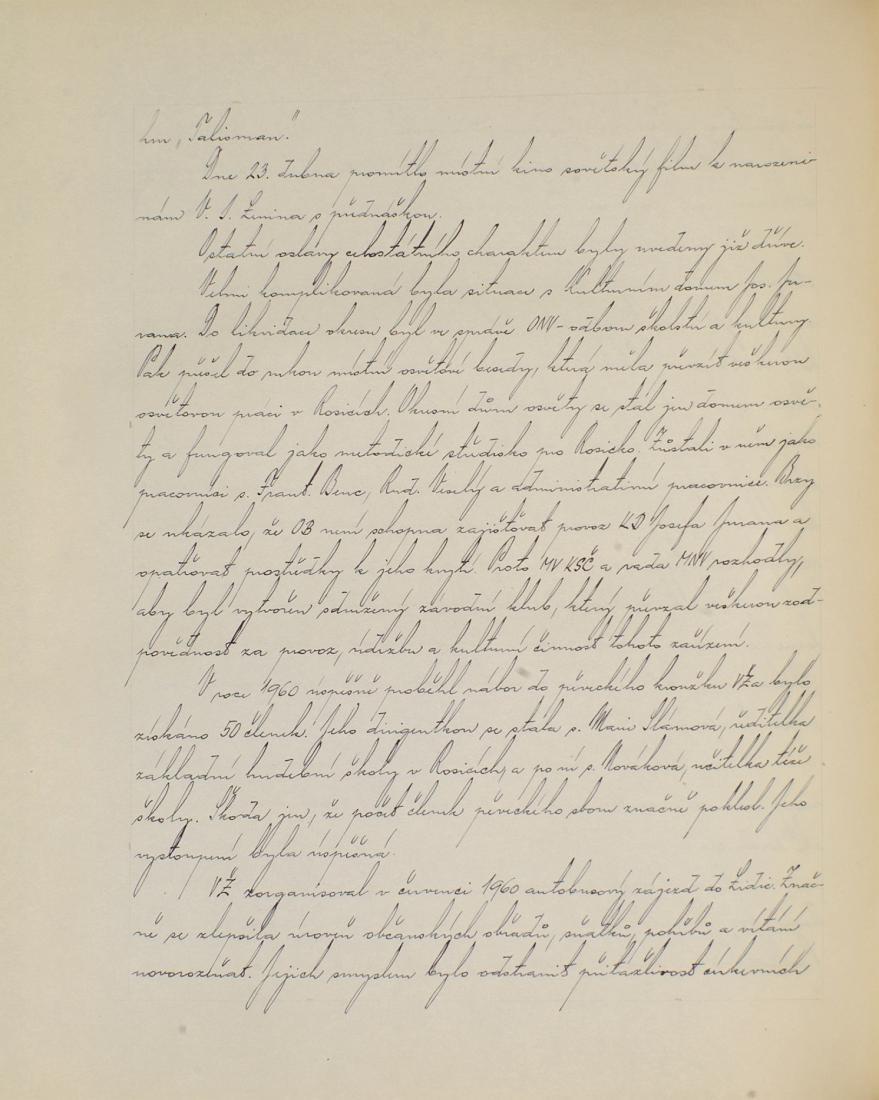 hru „Talisman".
Dne 23. dubna promítlo místní kino sovětský film k narozeni-
nám V. I. Lenina s přednáškou.
Ostatní oslavy celostátního charakteru byly uvedeny již dříve.
Velmi komplikovaná byla situace s Kulturním domem Jos. Ju-
rana. Do likvidace okresu byl ve správě ONV - odboru školství a kultury.
Pak přešel do rukou místní osvětové besedy, která měla převzít veškerou
osvětovou práci v Rosicích. Okresní dům osvěty se stal jen domem osvě-
ty a fungoval jako metodické středisko pro Rosicko. Zůstali v něm jako
pracovníci s. Frant. Benc, Rud. Veselý a administrativní pracovnice. Brzy
se ukázalo, že OB není schopna zajišťovat provoz KD Josefa Jurana a
opatřovat prostředky k jeho krytí. Proto MV KSČ a rada MNV rozhodly,
aby byl vytvořen sdružený závodní klub, který převzal veškerou zod-
povědnost za provoz, údržbu a kulturní činnost tohoto zařízení.
V roce 1960 úspěšně proběhl nábor do pěveckého kroužku VŽ a bylo
získáno 50 členek. Jeho dirigentkou se stala s. Marie Slámová, ředitelka
základní hudební školy v Rosicích, a po ní s. Nováková, učitelka téže
školy. Škoda jen, že počet členek pěveckého sboru značně poklesl. Jeho
vystoupení byla úspěšná.
VŽ zorganisoval v červenci 1960 autobusový zájezd do Lidic. Znač-
ně se zlepšila úroveň občanských obřadů, sňatků, pohřbů a vítání
novorozeňat. Jejich smyslem bylo odstranit přitažlivost církevních